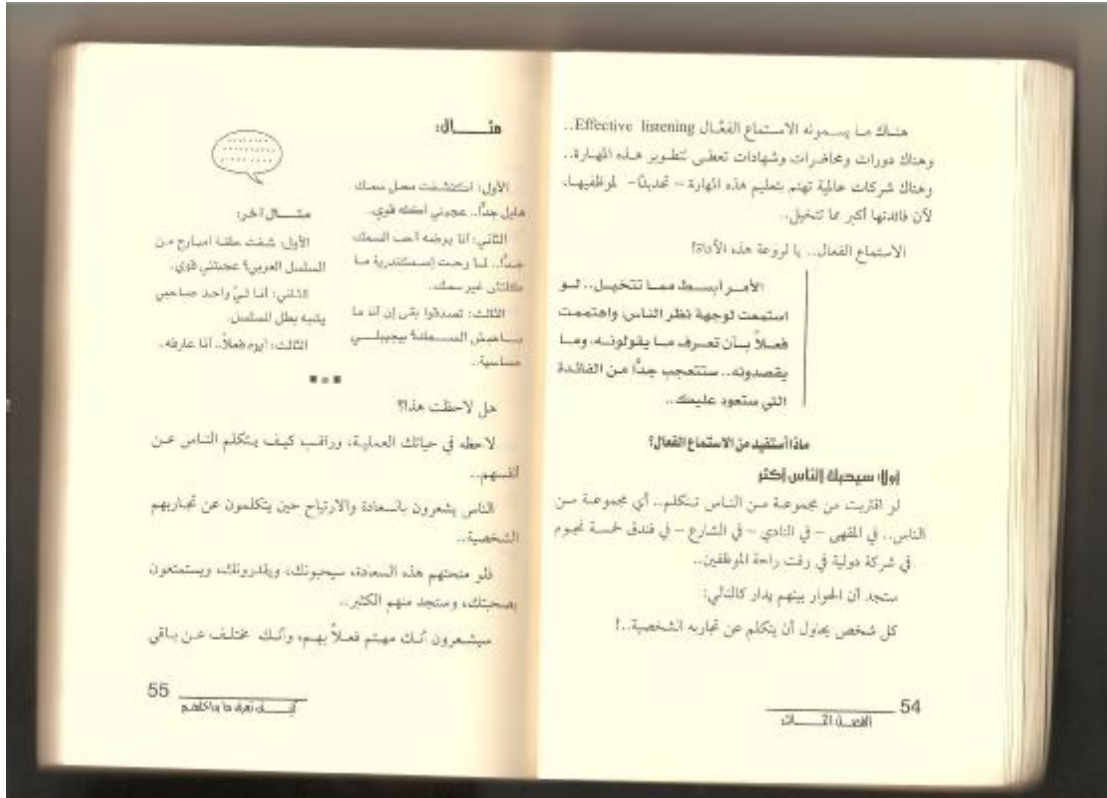 هناك ما يسمونه الاستماع الفعّال Effective listening..
وهناك دورات ومحاضرات وشهادات تعطى لتطوير هذه المهارة..
وهناك شركات عالمية تهتم بتعليم هذه المهارة – تحديدًا – لموظفيها،
لأن فائدتها أكبر مما تتخيل..
الاستماع الفعال.. يا لروعة هذه الأداة!
الأمر أبسط مما تتخيل.. لو
استمعت لوجهة نظر الناس، واهتممت
فعلاً بأن تعرف ما يقولونه، وما
يقصدونه.. ستتعجب جدًّا من الفائدة
التي ستعود عليك..
ماذا أستفيد من الاستماع الفعال؟
أولا: سيحبك الناس أكثر
لو اقتربت من مجموعة من الناس تتكلم.. أي مجموعة من
الناس.. في المقهى – في النادي – في الشارع – في فندق خمسة نجوم
في شركة دولية في وقت راحة الموظفين..
ستجد أن الحوار بينهم يدار كالتالي:
كل شخص يحاول أن يتكلم عن تجاربه الشخصية..!
54
الفصل الثالث
مثال:
الأول: اكتشفت محل سمك
هايل جدًّا.. عجبني أكله قوي..
الثاني: أنا برضه أحب السمك
جدًّا.. لما رحت إسكندرية ما
كلتش غير سمك..
الثالث: تصدقوا بقى إن أنا ما
باحبش السمك؟ بيجيبلي
حساسية..
مثال آخر:
الأول: شفت حلقة امبارح من
المسلسل العربي؟ عجبتني قوي..
الثاني: أنا ليَّ واحد صاحبي
يشبه بطل المسلسل.
الثالث: أيوه فعلاً.. أنا عارفه..
هل لاحظت هذا؟
لاحظه في حياتك العملية، وراقب كيف يتكلم الناس عن
أنفسهم..
الناس يشعرون بالسعادة والارتياح حين يتكلمون عن تجاربهم
الشخصية..
فلو منحتهم هذه السعادة، سيحبونك، ويقدرونك، ويستمتعون
بصحبتك، وستجد منهم الكثير..
سيشعرون أنك مهتم فعلاً بهم، وأنك مختلف عن باقي
55